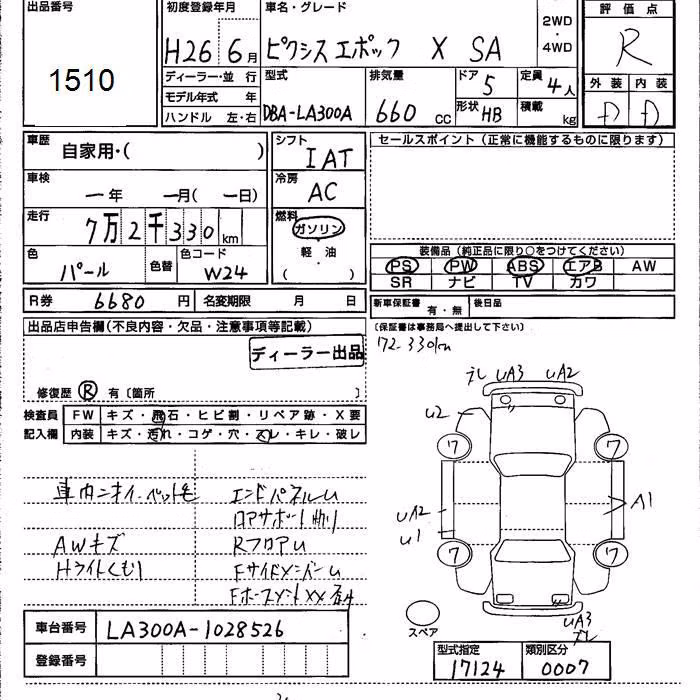 出品番号
1510
初度登録年月
H26 6月
車名・グレード
ピクシスエポック X SA
2WD
・
4WD
評価点
R
外装 内装
D D
ディーラー・並行
モデル年式 年
ハンドル 左・右
型式
DBA-LA300A
排気量
660 cc
ドア
5
形状
HB
定員
4人
積載
kg
車歴
自家用・( )
車検
一年 一月(一日)
走行
7万2千330km
色
パール
色替
色コード
W24
シフト
IAT
冷房
AC
燃料
ガソリン
軽・油
( )
セールスポイント(正常に機能するものに限ります)
装備品(純正品に限り○をつけてください)
PS PW ABS エアB AW
SR ナビ TV カワ
R券 6680円 名変期限 月 日
新車保証書 有・無 後日品
(保証書は事務局へ提出して下さい)
72-330km
出品店申告欄(不良内容・欠品・注意事項等記載)
ディーラー出品
修復歴 R 有〔箇所 〕
検査員
記入欄
FW キズ・飛石・ヒビ割・リペア跡・X要
内装 キズ・汚れ・コゲ・穴・スレ・キレ・破レ
車内ニオイ・ペット毛
AWキズ
Hライトくもり
エンドパネルU
ロアサポート曲り
RフロアU
FサイドメンバーU
ズレ UA3 UA2
U2
ワ ワ
UA2
U1
A1
ワ ワ
UA3
ズレ
スペア
車台番号 LA300A-1028526
登録番号
型式指定 類別区分
17124 0007